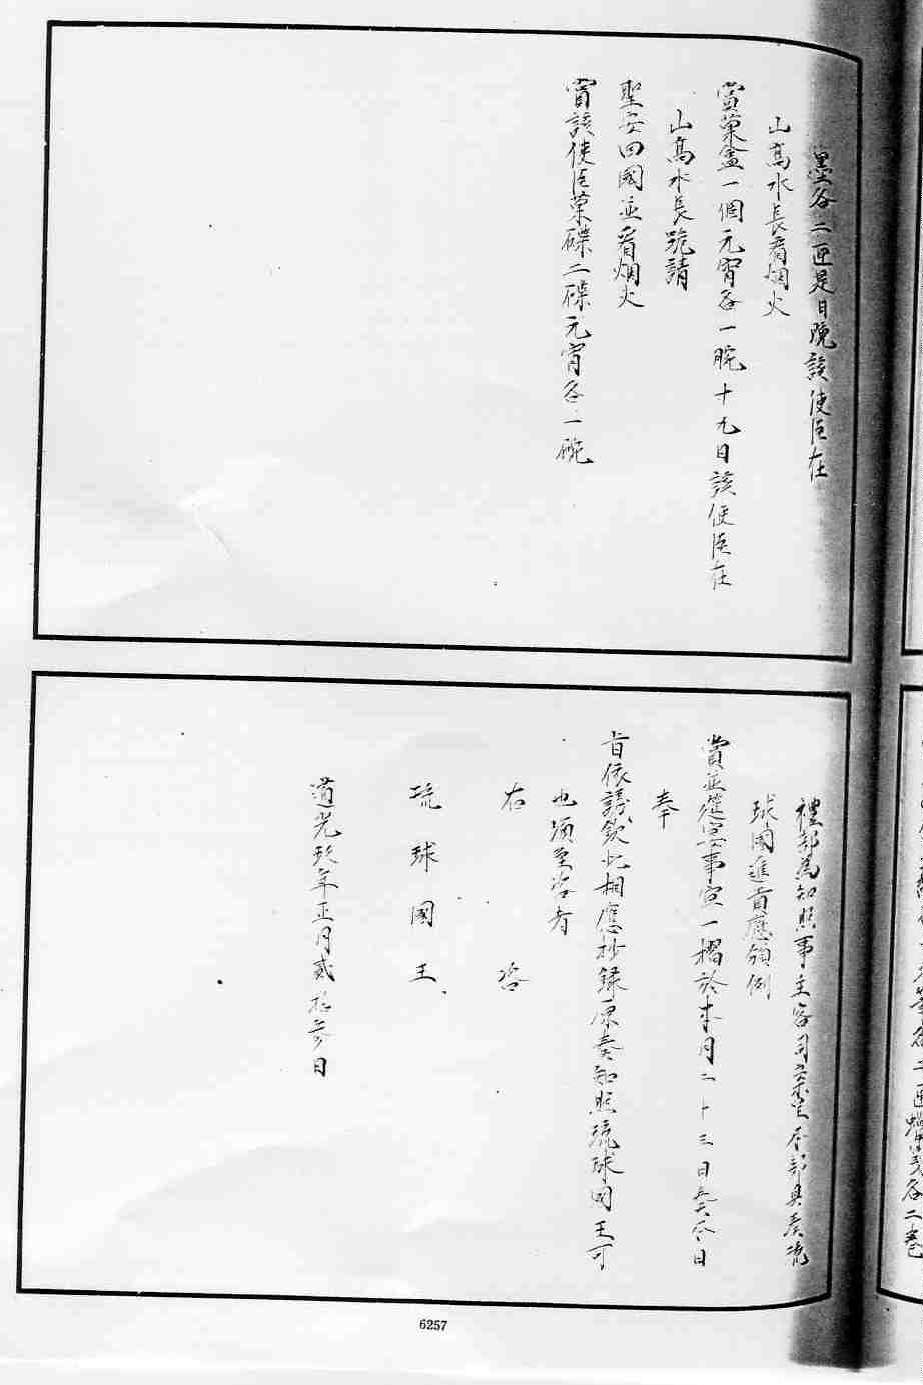 墨各二匣是日晚該使臣在
山高水長看烟火
賞菓盒一個元宵各一碗十九日該使臣在
山高水長跪請
聖安四國並看烟火
賞該使臣菓碟二碟元宵各一碗
禮部為知照事主客司案呈本部具奏琉
球國進貢應領例
賞並筵宴事宜一摺於本月二十三日具奏本日
奉
旨依議欽此相應抄錄原奏知照琉球國王可
也須至咨者
右 咨
琉球國王
道光玖年正月貳拾參日
6257